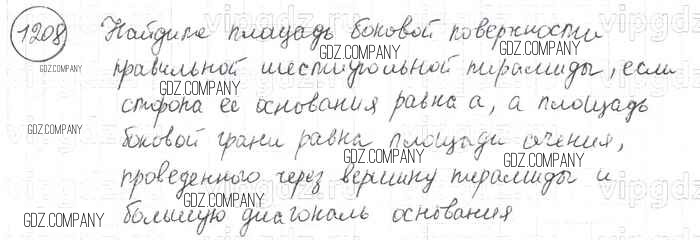 1208 Найдите площадь боковой поверхности
правильной шестиугольной пирамиды, если
сторона ее основания равна а, а площадь
боковой грани равна площади сечения,
проведенного через вершину пирамиды и
большую диагональ основания
GDZ.COMPANY
GDZ.COMPANY
GDZ.COMPANY
GDZ.COMPANY
GDZ.COMPANY
GDZ.COMPANY
GDZ.COMPANY
GDZ.COMPANY
GDZ.COMPANY